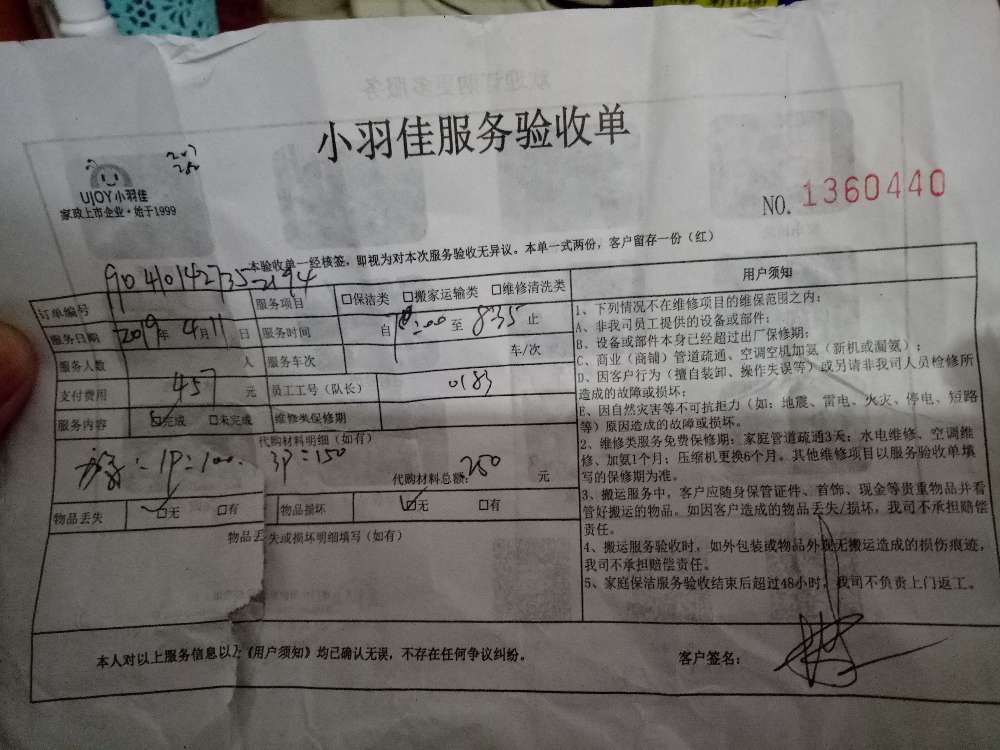 小羽佳服务验收单
207
250
UJOY小羽佳
家政上市企业·始于1999
NO. 1360440
本验收单一经核签，即视为对本次服务验收无异议。本单一式两份，客户留存一份（红）
订单编号 服务项目 □保洁类 □搬家运输类 □维修清洗类
服务日期 2019年 4月11日 服务时间 自 至 835 止
服务人数 人 服务车次 车/次
支付费用 457 元 员工工号（队长） 0183
服务内容 □完成 □未完成 维修类保修期
代购材料明细（如有）
1P=100. 3P=150
代购材料总额：250 元
物品丢失 □无 □有 物品损坏 □无 □有
物品丢失或损坏明细填写（如有）
用户须知
1、下列情况不在维修项目的维保范围之内：
A、非我司员工提供的设备或部件；
B、设备或部件本身已经超过出厂保修期；
C、商业（商铺）管道疏通、空调空机加氨（新机或漏氨）；
D、因客户行为（擅自装卸、操作失误等）或另请非我司人员检修所
造成的故障或损坏；
E、因自然灾害等不可抗拒力（如：地震、雷电、火灾、停电、短路
等）原因造成的故障或损坏。
2、维修类服务免费保修期：家庭管道疏通3天；水电维修、空调维
修、加氨1个月；压缩机更换6个月。其他维修项目以服务验收单填
写的保修期为准。
3、搬运服务中，客户应随身保管证件、首饰、现金等贵重物品并看
管好搬运的物品。如因客户造成的物品丢失/损坏，我司不承担赔偿
责任。
4、搬运服务验收时，如外包装或物品外观无搬运造成的损伤痕迹，
我司不承担赔偿责任。
5、家庭保洁服务验收结束后超过48小时，我司不负责上门返工。
本人对以上服务信息以及《用户须知》均已确认无误，不存在任何争议纠纷。 客户签名：